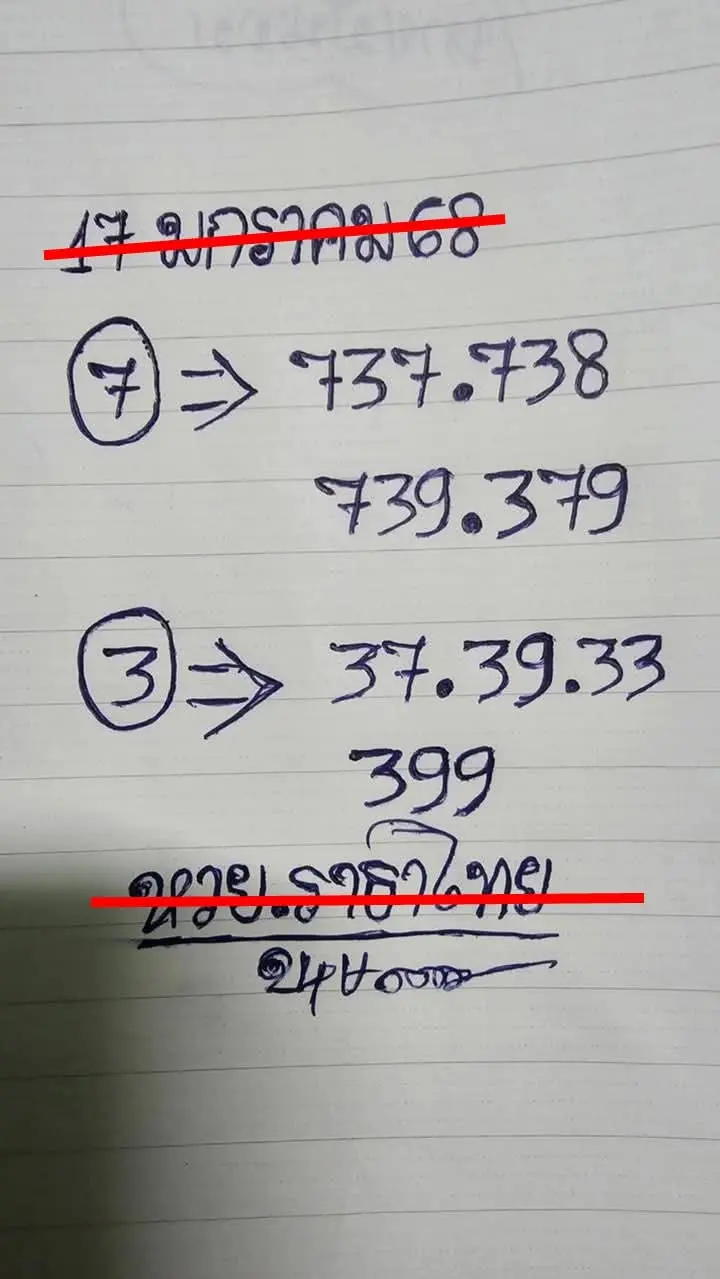 17 มกราคม 68
7 ⇒ 737.738
739.379
3 ⇒ 37.39.33
399
หวย.ราธาไทย